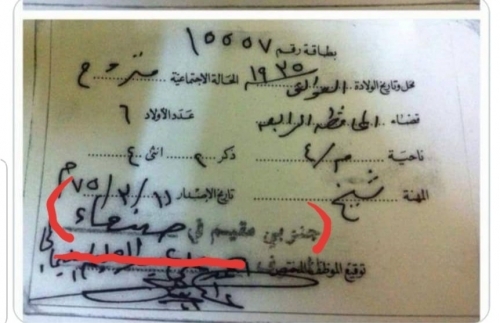 بطاقة رقم ١٥٥٥٧
محل وتاريخ الولادة السوادي ١٩٣٥ الحالة الاجتماعية متزوج
قضاء المحافظة الرابعة عدد الأولاد ٦
ناحية م/٤ ذكر ٢ انثى ٤
المهنة شيخ تاريخ الإصدار ١١/٢/٧٥م
جنوبي مقيم في صنعاء
توقيع الموظف المختص